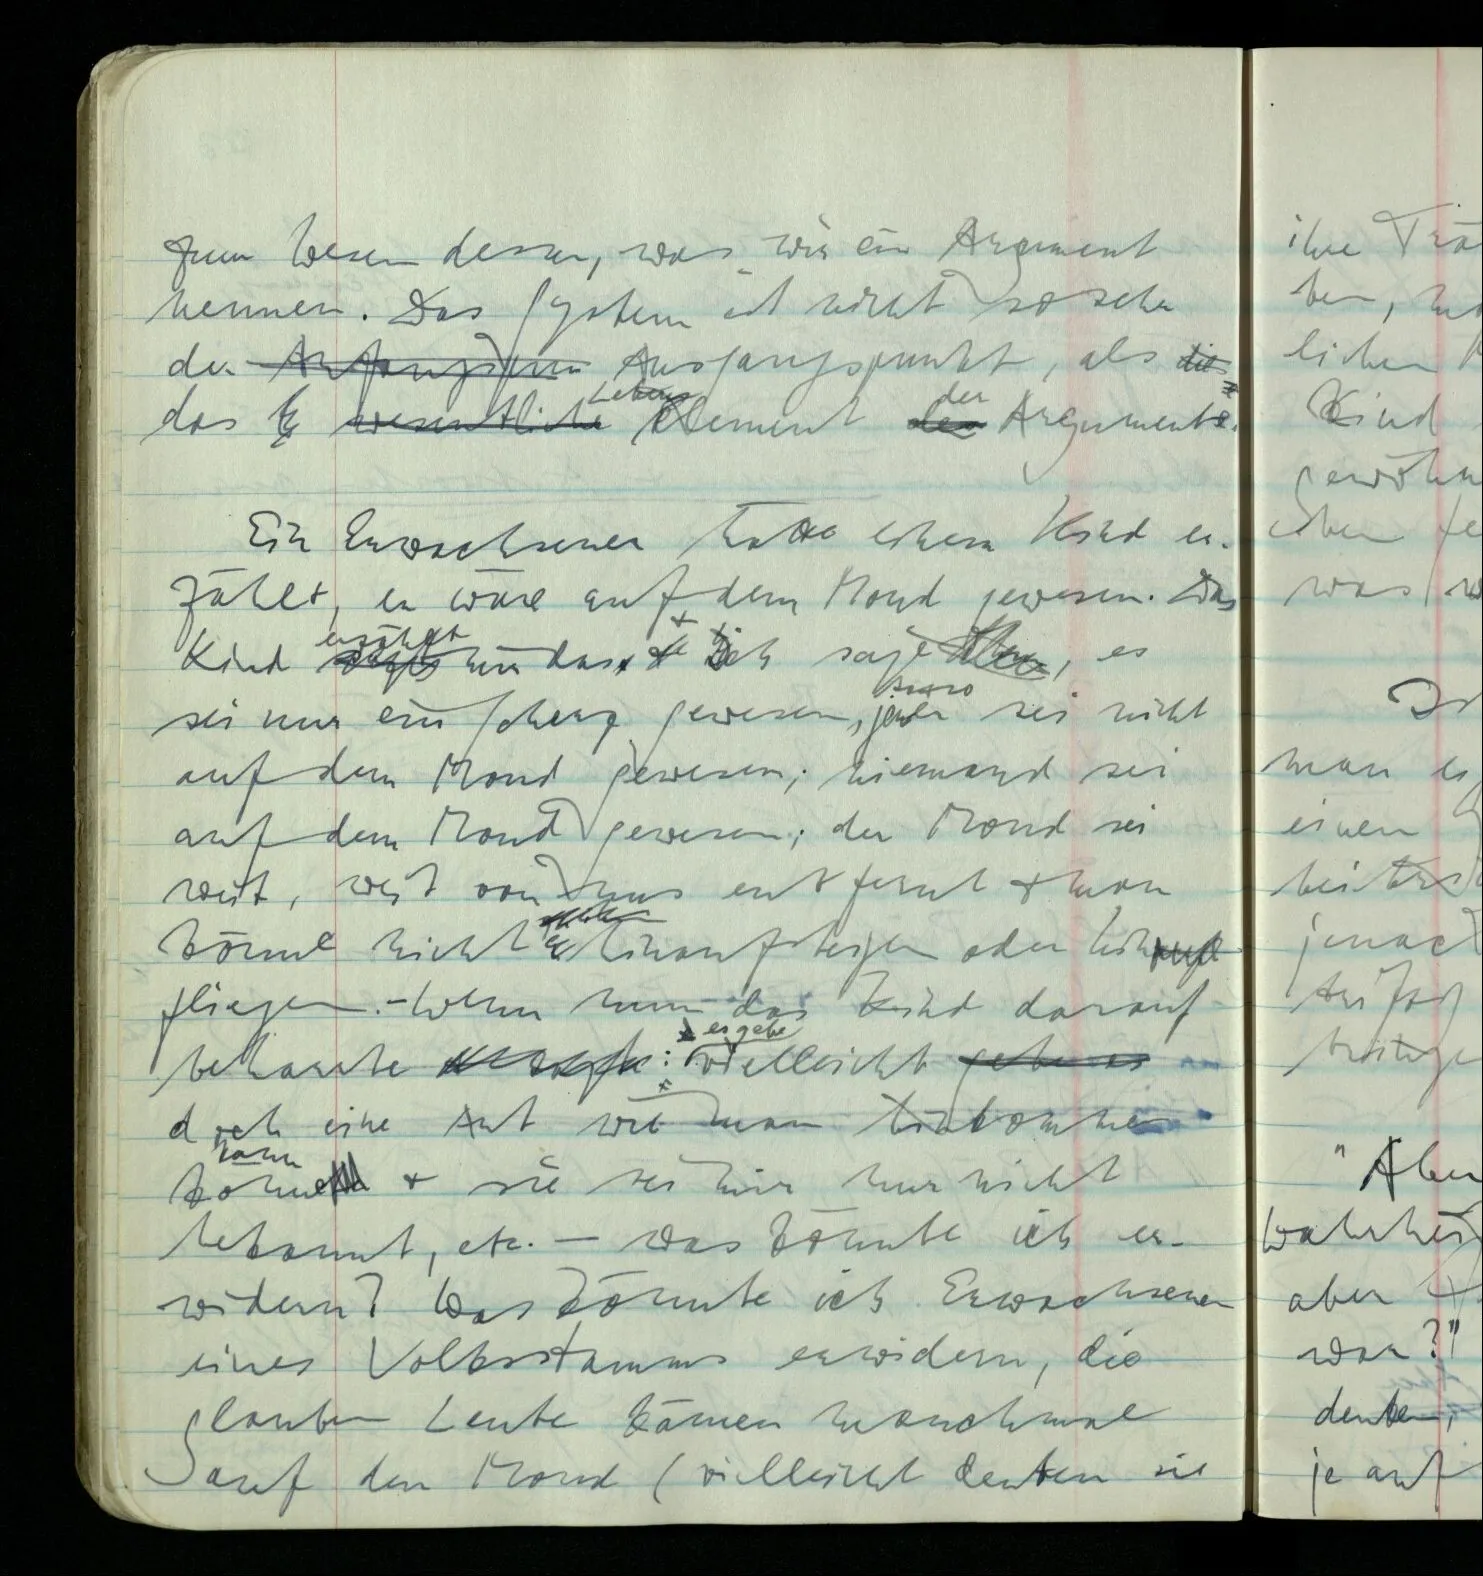 zum Wesen dessen, was wir ein Argument
nennen. Das System ist nicht so sehr
der Anfangspun Ausgangspunkt, als die
das E wesentliche Lebenselement der Argumente.
Ein Erwachsener hätte einem Kind er-
zählt, er wäre auf dem Mond gewesen. Das
Kind erzählt mir das, + ich sage, es
sei nur ein Scherz gewesen, jener sei nicht
auf dem Mond gewesen; niemand sei
auf dem Mond gewesen; der Mond sei
weit, weit von uns entfernt + man
könne nicht hinaufsteigen oder hin
fliegen. – Wenn nun das Kind darauf
beharrte: es gebe vielleicht gebe es
doch eine Art wie man hinkommen
kann + sie sei mir nur nicht
bekannt, etc. – was könnte ich er-
widern? Was könnte ich Erwachsenen
eines Volksstamms erwidern, die
glauben Leute kämen manchmal
auf den Mond (vielleicht deuten sie
ihre
ben,
lichen
Kind
gewöhn
eben
was
man
einen
"Aber
wahrhei
aber
war?"
denken,
je auf